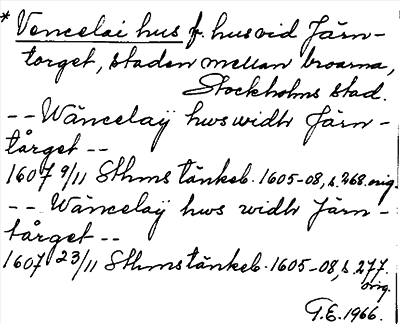 * Vencelai hus f. hus vid Järn-
torget, staden mellan broarna,
Stockholms stad.
-- Wäncelaÿ hws widh Järn-
tårget --
1607 9/11 Sthms tänkeb. 1605-08, s. 268. orig.
-- Wäncelaÿ hws widh Järn-
tårget --
1607 23/11 Sthms tänkeb. 1605-08, s. 277.
orig.
G.E. 1966.